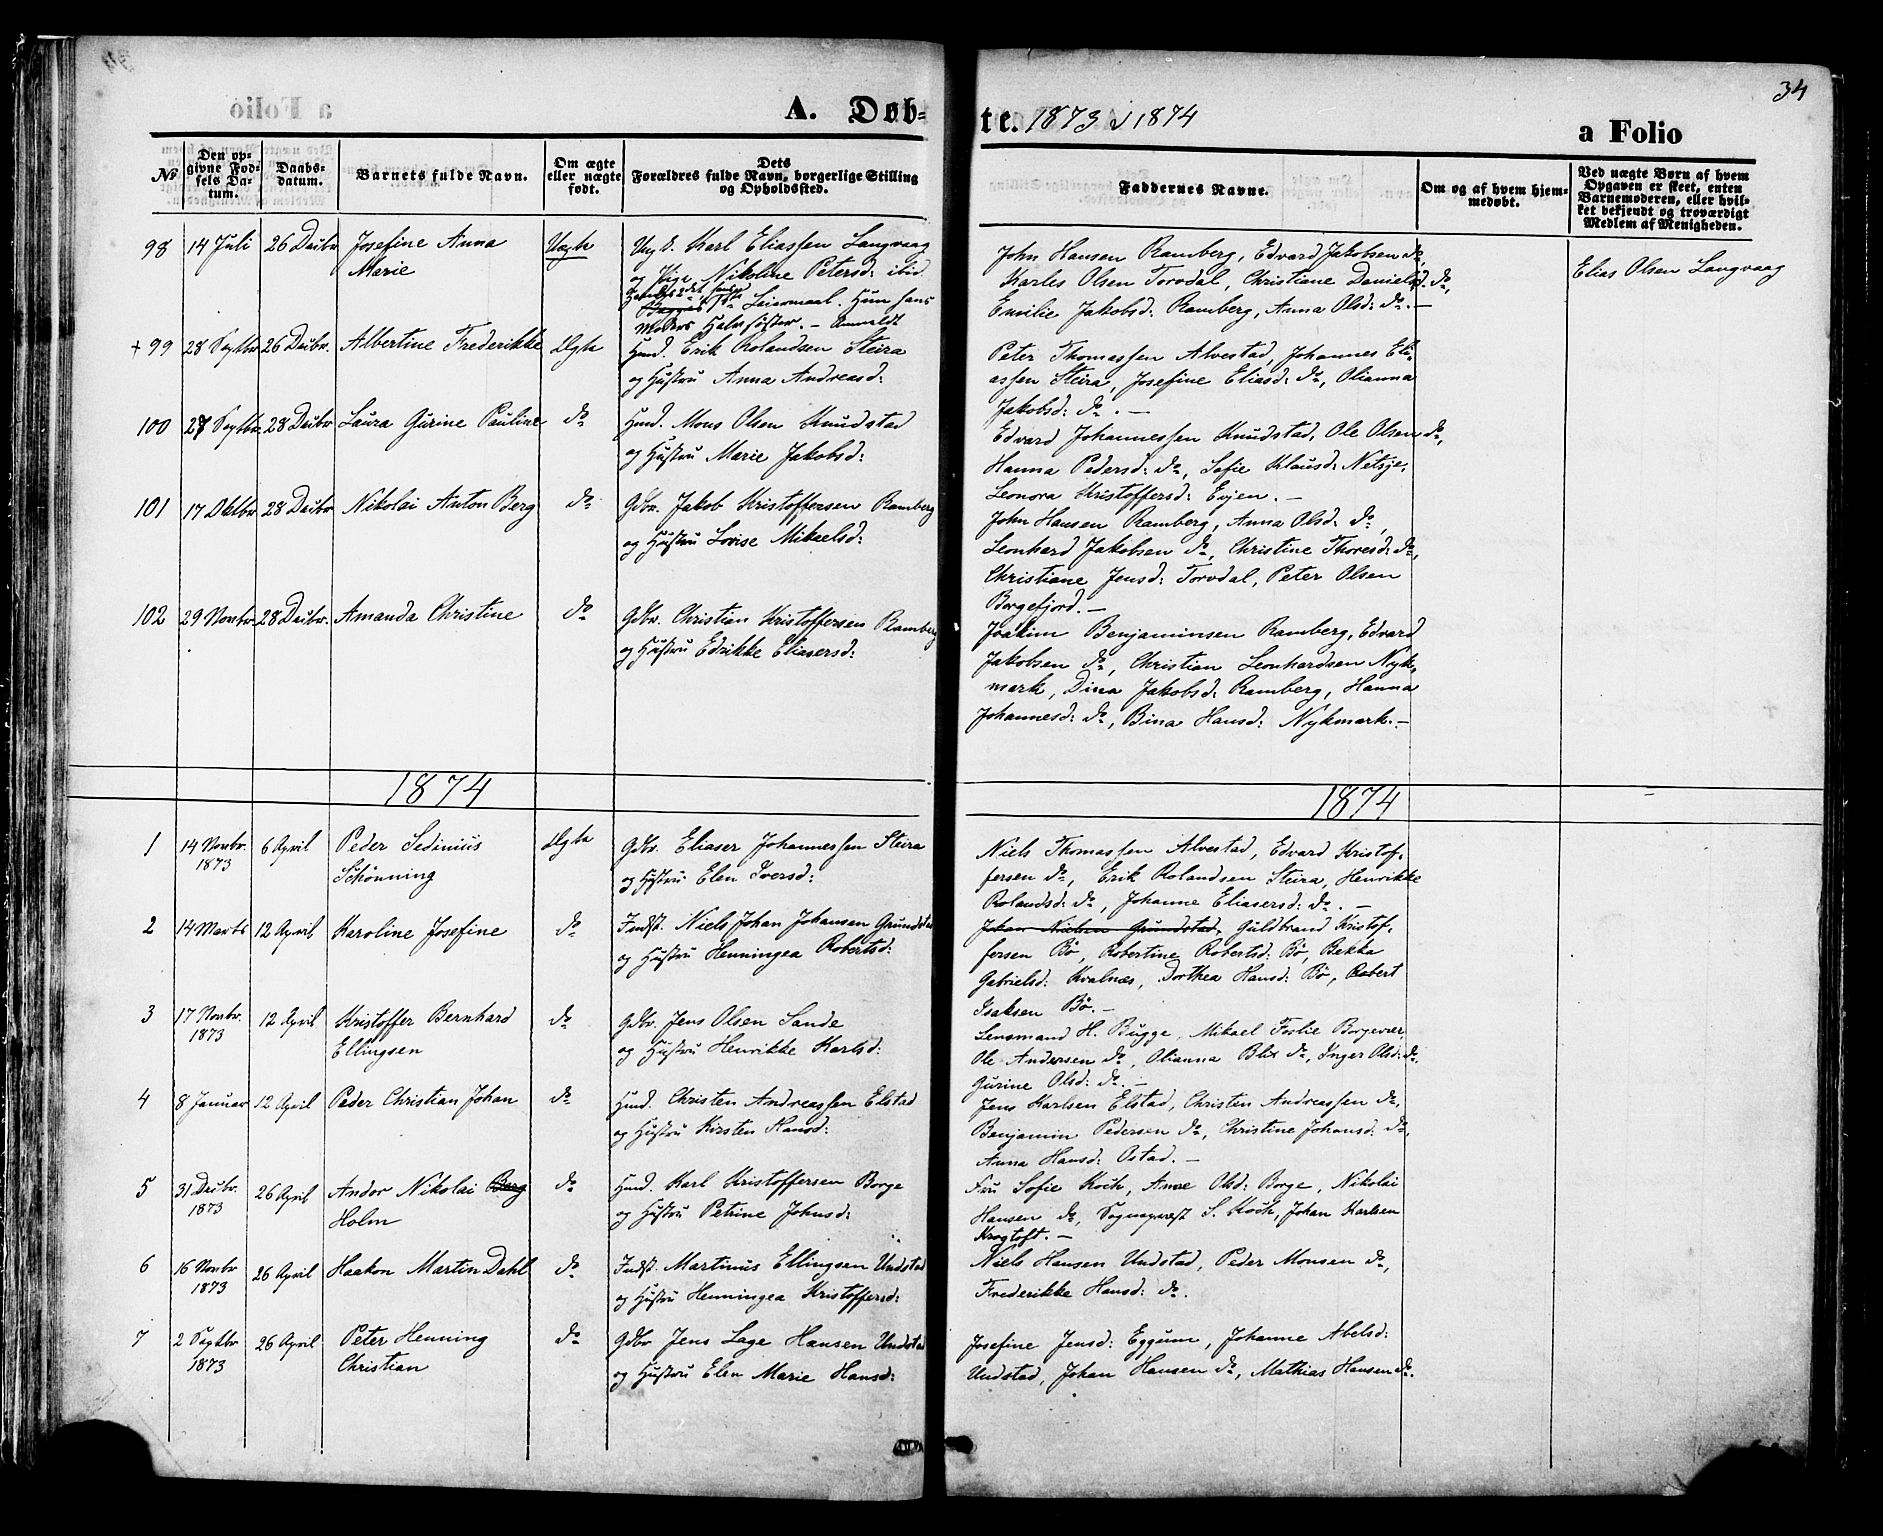 34
A. Døbte. 1873 & 1874
a Folio
No
Den opgivne Fødsels Datum.
Daabsdatum.
Barnets fulde Navn.
Om ægte eller uægte født.
Dets Forældres fulde Navn, borgerlige Stilling og Opholdssted.
Faddernes Navne.
Om og af hvem hjemmedøbt.
Ved uægte Børn af hvem Opgaven er skeet, enten Barnemoderen, eller hvilket bekjendt og troværdigt Medlem af Menigheden.
98 14 Juli 26 Decbr. Josefine Anna
Marie
Uægte
Ung. Karl Eliassen Langvaag
og Pige Nikoline Petersd: ibid.
Leiermaal. Hun hans
Moders Halvsøster. – Anmeldt
John Hansen Ramberg, Edvard Jakobsen do,
Karles Olsen Torvdal, Christiane Danielsd: do,
Emilie Jakobsd: Ramberg, Anna Olsd: do. –
Elias Olsen Langvaag
+ 99 28 Septbr. 26 Decbr. Albertine Frederikke Ægte
Hmd. Erik Rolandsen Steira
og Hustru Anna Andreasd:
Peter Thomassen Alvestad, Johannes Eli-
assen Steira, Josefine Eliasd: do, Olianna
Jakobsd: do. –
100 27 Septbr. 28 Decbr. Laura Gurine Pauline do
Hmd. Mons Olsen Knudstad
og Hustru Marie Jakobsd:
Edvard Johannessen Knudstad, Ole Olsen do,
Hanna Pedersd: do, Sofie Klausd: Netsje,
Leonora Kristoffersd: Evjen. –
101 17 Oktbr. 28 Decbr. Nikolai Anton Berg do
Gdbr. Jakob Kristoffersen Ramberg
og Hustru Lovise Mikaelsd:
John Hansen Ramberg, Anna Olsd: do,
Leonhard Jakobsen do, Christine Thoresd: do,
Christiane Jensd: Torvdal, Peter Olsen
Borgefjord. –
102 29 Novbr. 28 Decbr. Amanda Christine do
Gdbr. Christian Kristoffersen Ramberg
og Hustru Edrikke Eliasersd:
Joakim Benjaminsen Ramberg, Edvard
Jakobsen do, Christian Leonhardsen Nyk-
mark, Dina Jakobsd: Ramberg, Hanna
Johannesd: do, Bina Hansd: Nykmark. –
1874
1874
1 14 Novbr. 1873 6 April Peder Sedinius
Schönning
Ægte
Gdbr. Eliaser Johannessen Steira
og Hustru Elen Iversd:
Niels Thomassen Alvestad, Edvard Kristof-
fersen do, Erik Rolandsen Steira, Henrikke
Rolandsd: do, Johanne Eliasersd: do. –
2 14 Marts 12 April Karoline Josefine do
Indst. Niels Johan Johansen Grundstad
og Hustru Henningea Robertsd:
Johan Nielsen Grundstad, Guldbrand Kristof-
fersen Bø, Robertine Robertsd: Bø, Bekka
Gabrielsd: Kvalnæs, Dorthea Hansd: Bø, Robert
Isaksen Bø. –
3 17 Novbr. 1873 12 April Kristoffer Bernhard
Ellingsen
do
Gdbr. Jens Olsen Sande
og Hustru Henrikke Karlsd:
Lensmand H. Bugge, Mikael Foslie Borgevær,
Ole Andersen do, Olianna Blix do, Inger Olsd: do,
Gurine Olsd: do. –
4 8 Januar 12 April Peder Christian Johan do
Hmd. Christen Andreassen Elstad
og Hustru Kirsten Hansd:
Jens Karlsen Elstad, Christen Andreassen do,
Benjamin Pedersen do, Christine Johansd: do,
Anna Hansd: Ostad. –
5 31 Decbr. 1873 26 April Andor Nikolai Berg
Holm
do
Hmd. Karl Kristoffersen Borge
og Hustru Petrine Johnsd:
Fru Sofie Koch, Anne Olsd: Borge, Nikolai
Hansen do, Sogneprest S. Koch, Johan Karlsen
Krogtoft. –
6 16 Novbr 1873 26 April Haakon Martin Dahl do
Indst. Martinus Ellingsen Undstad
og Hustru Henningea Kristoffersd:
Niels Hansen Undstad, Peder Monsen do,
Frederikke Hansd: do.
7 2 Septbr 1873 26 April Peter Henning
Christian
do
Gdbr Jens Lage Hansen Undstad
og Hustru Elen Marie Hansd:
Josefine Jensd: Eggum, Johanne Abelsd:
Undstad, Johan Hansen do, Mathias Hansen do.